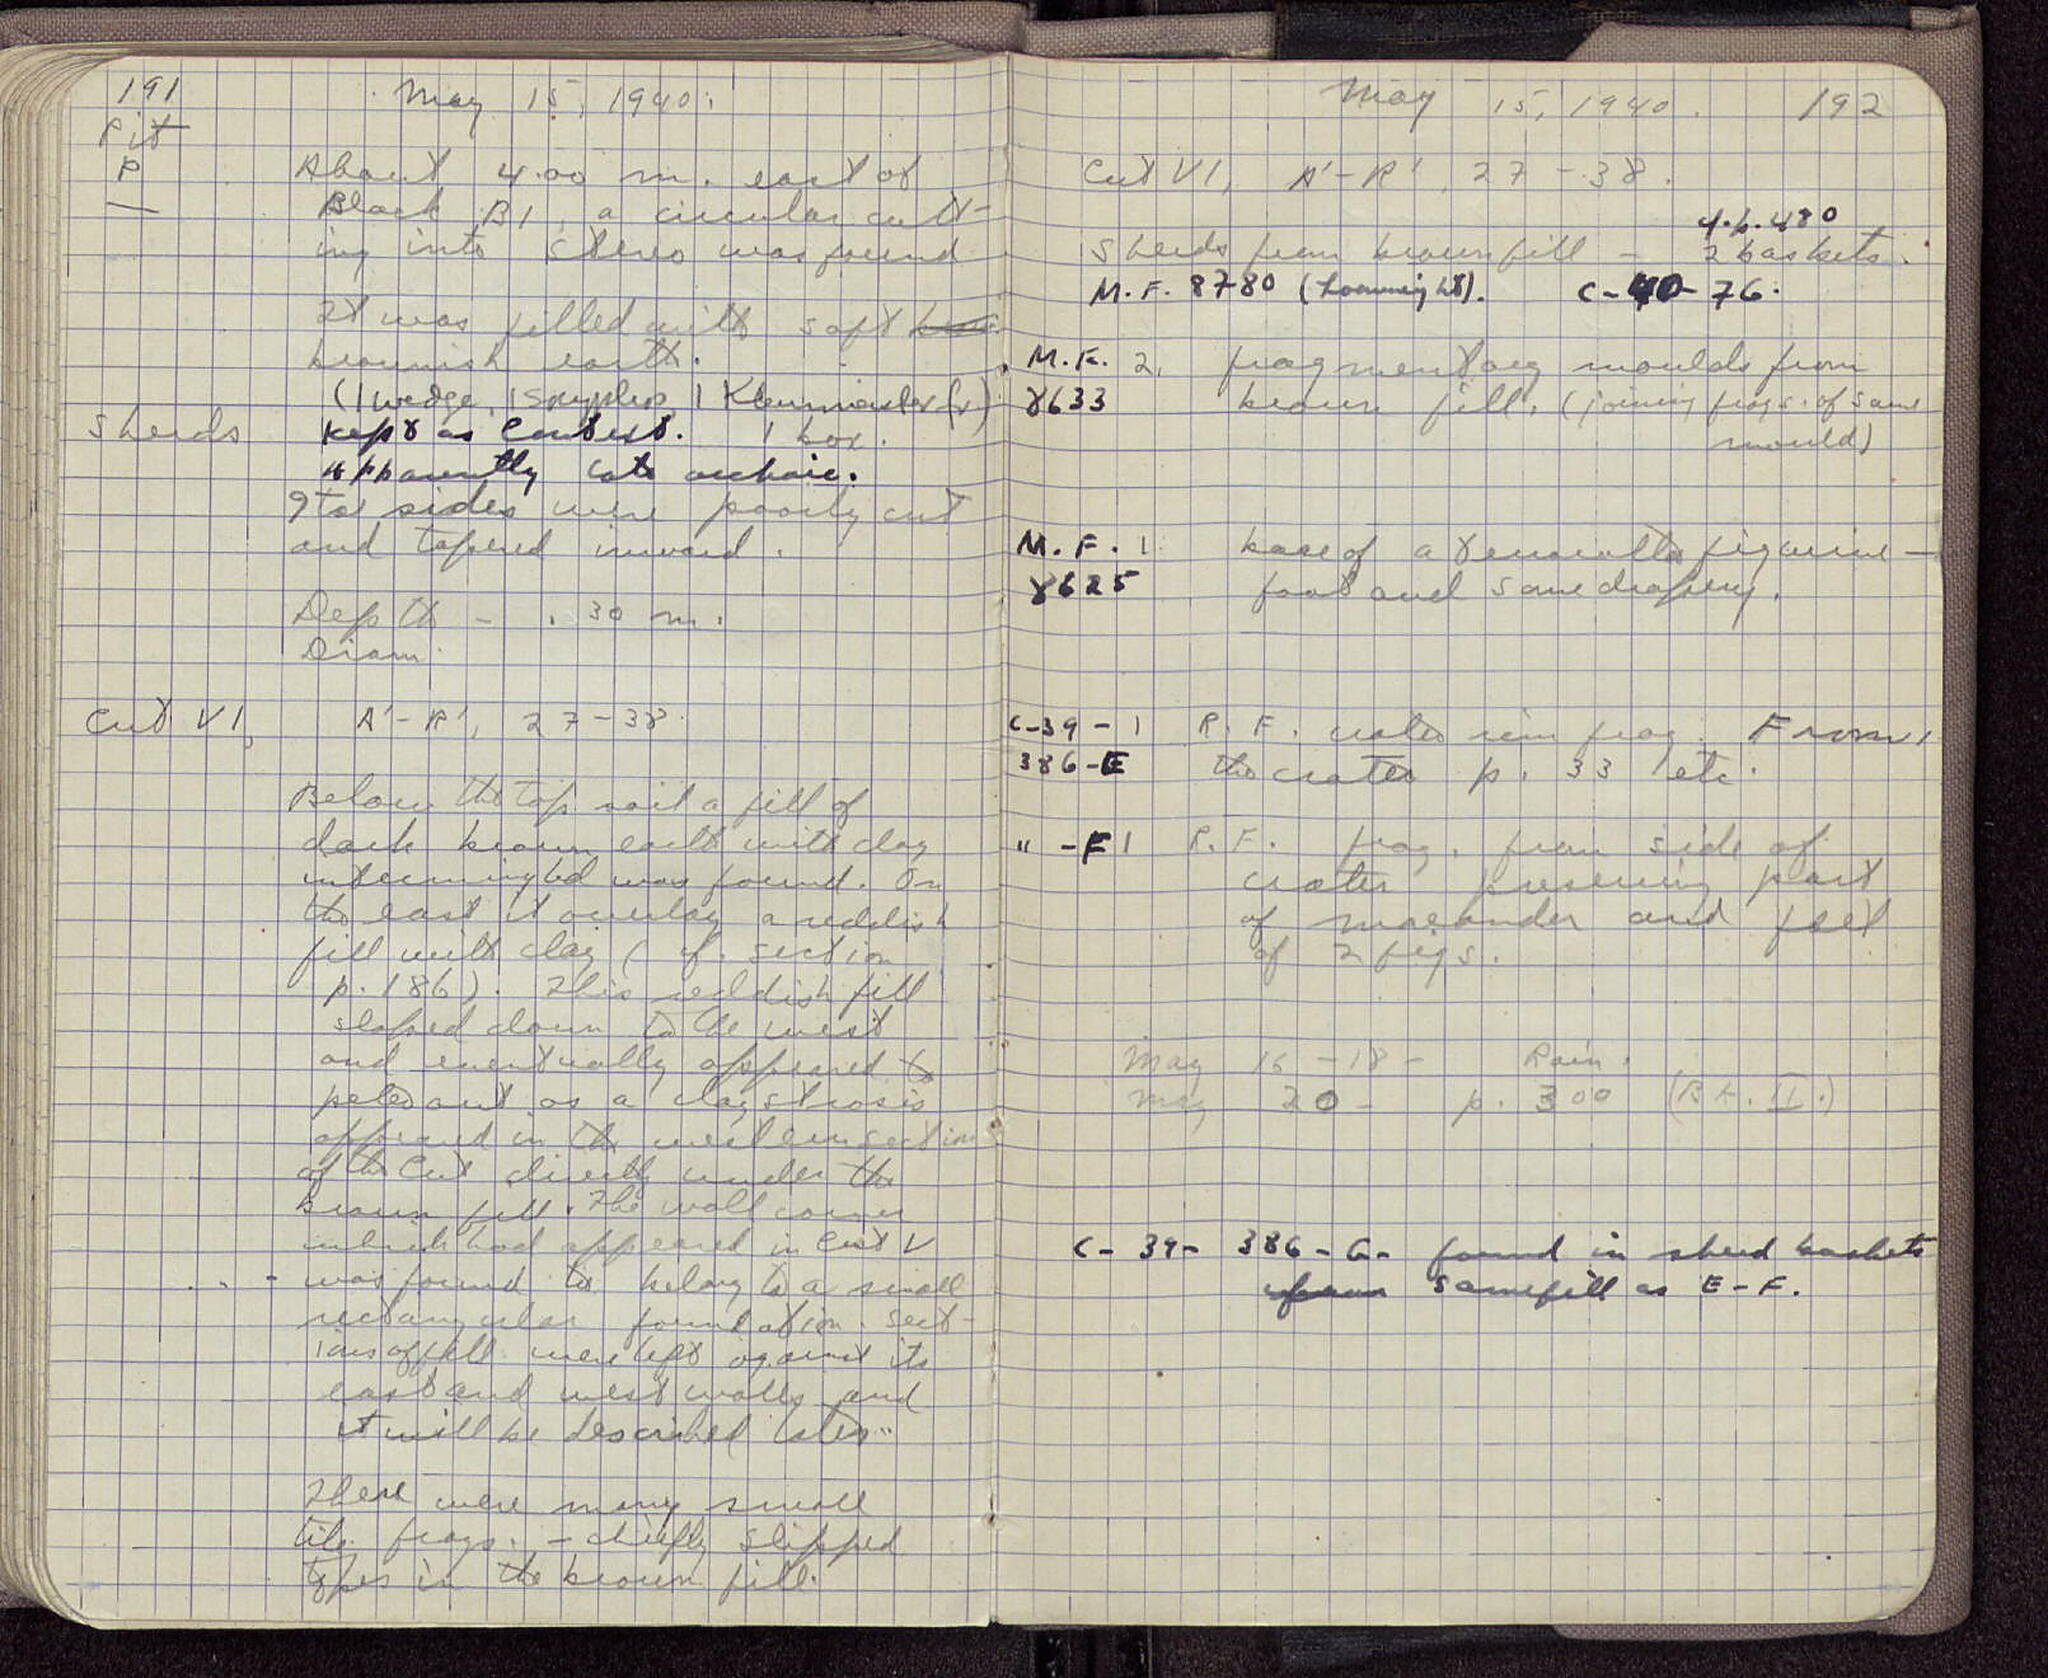 191
May 15, 1940.
Pit
P
About 4.00 m. east of
Block B1, a circular cutt-
ing into stereo was found
It was filled with soft
brownish earth.
(1 wedge, 1 skyphos, 1 Kleinmeister fr)
Sherds kept as Context. 1 box.
apparently late archaic.
Its sides were poorly cut
and tapered inward.
Depth - .30 m.
Diam.
Cut VI, A'-R', 27-38.
Below the top soil a fill of
dark brown earth with clay
intermingled was found. On
the east it overlay a reddish
fill with clay (cf. section
p. 186). This reddish fill
sloped down to the west
and eventually appeared to
peter out as a clay strosis
appeared in the western section
of the Cut directly under the
brown fill. The wall corner
which had appeared in Cut V
was found to belong to a small
rectangular foundation. Sect-
ions of fill were left against its
east and west walls and
it will be described later.
There were many small
tile frags. - chiefly slipped
types in the brown fill.
May 15, 1940. 192
Cut VI, A'-R', 27-38.
4.b.480
Sherds from brown fill - 2 baskets.
M.F. 8780 (loomweight). C-40-76.
M.F. 2. fragmentary moulds from
8633 brown fill. (joining frags. of same
mould)
M.F. 1 base of a terracotta figurine -
8625 foot and some drapery.
C-39- 1 R.F. crater rim frag. From
386-E the crater p. 33 etc.
" -F 1 R.F. frag. from side of
crater preserving part
of maeander and feet
of 2 figs.
May 16-18 - Rain.
May 20 - p. 300 (Bk. II.)
C-39-386-G- found in sherd baskets
from same fill as E-F.